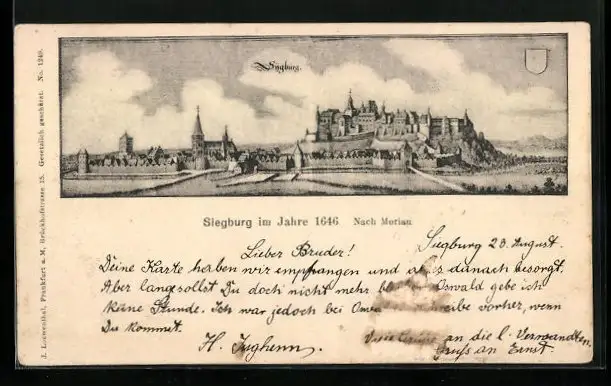 Siegburg.
Siegburg im Jahre 1646 Nach Merian
J. Loewenthal, Frankfurt a. M, Brückhofstrasse 15. Gesetzlich geschützt. No. 1248.
Siegburg 23. August.
Lieber Bruder!
Deine Karte haben wir empfangen und danach besorgt.
Aber lange sollst Du doch nicht mehr Oswald gebe ich
keine Stunde. Ich war jedoch bei vorher, wenn
Du kommst. an die l. Verwandten.
H. Gruß an Ernst.